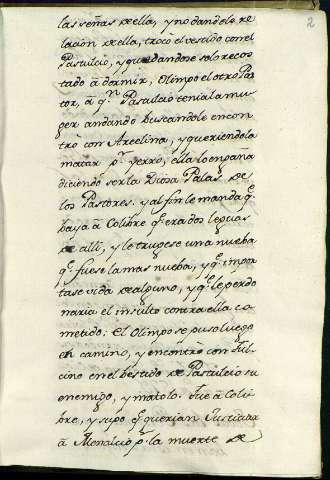 2
las señas de ella, y no dandole re
lacion de ella, trocò el vestido con el
Pastulcio, y quedandose solo recos
tado à dormir, Olimpo el otro Pas
tor, à qn Pastulcio tenia la mu
ger andando buscandole encon
trò con Arcelina, y queriendola
matar pr yerro, ella lo engaña
diciendo ser la Diosa Palas de
los Pastores. y al fin le manda qe
baya à Colibre qe era dos leguas
de alli, y le trugese una nueba
qe fuese la mas nueba, y qe impor
tase vida de alguno, y qe le perdo
naria el insulto contra ella co
metido: El Olimpo se puso luego
en camino, y encontrò con
cino en el bestido de Pastulcio su
enemigo, y matolo. Fue à Coli
bre, y supo qe querian Justiciar
à Menalcio pr la muerte de